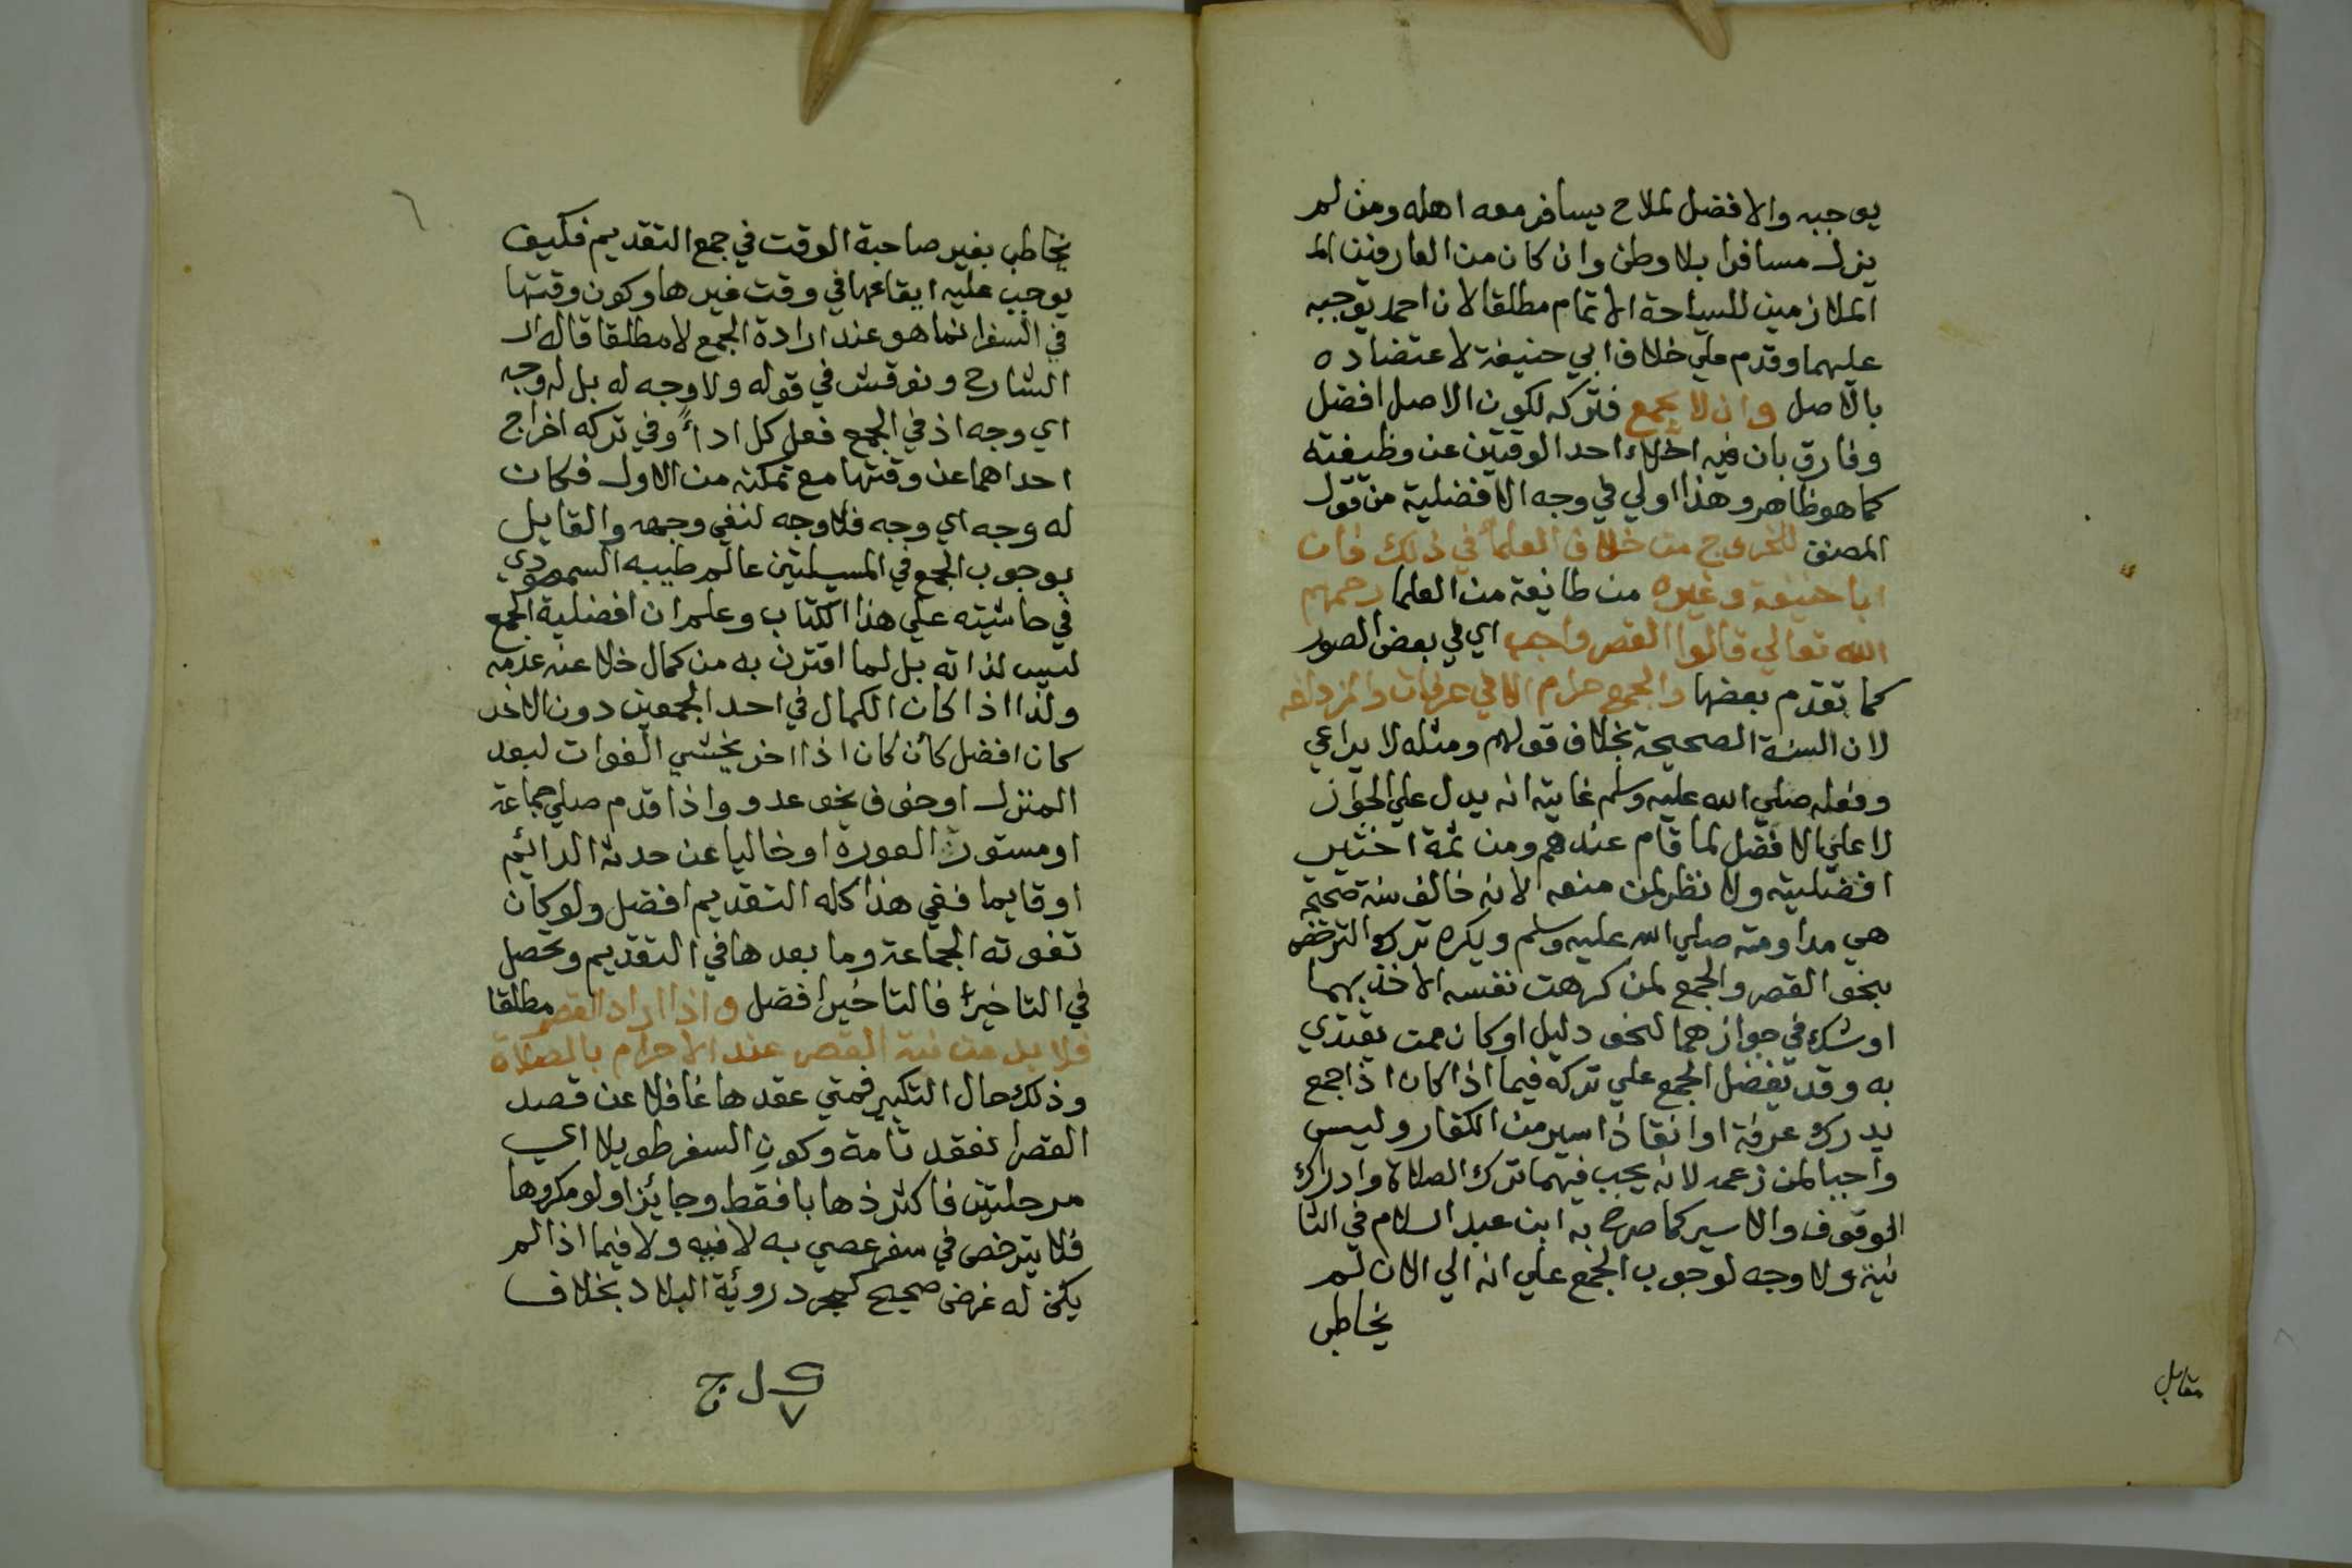 يوجبه والافضل لملاح يسافر معه اهله ومن لم
يزل مسافرا بلا وطن وان كان من العارفين الم
الملازمين للسياحة الاتمام مطلقا لان احمد يوجبه
عليهما وقدم علي خلاف ابي حنيفة لاعتضاده
بالاصل وان لا يجمع فتركه لكون الاصل افضل
وفارق بان فيه اخلاء احد الوقتين عن وظيفته
كما هو ظاهر وهذا اولي في وجه الافضلية من قول
المصنف للخروج من خلاف العلماء في ذلك فان
ابا حنيفة وغيره من طايفة من العلما رحمهم
الله تعالي قالوا القصر واجب اي في بعض الصور
كما تقدم بعضها والجمع حرام الا في عرفات والمزدلفه
لان السنة الصحيحة بخلاف قولهم ومثله لا يراعي
وفعله صلي الله عليه وسلم غايته انه يدل علي الجواز
لا علي الافضل لما قام عندهم ومن ثمة اختير
افضليته ولا نظر لمن منعه لانه خالف سنة صحيحة
هي مداومته صلي الله عليه وسلم ويكره ترك الترخص
بنحو القصر والجمع لمن كرهت نفسه الاخذ بهما
او شك في جوازهما لنحو دليل او كان ممن يقتدي
به وقد يفضل الجمع علي تركه فيما اذا كان اذا جمع
يدرك عرفة او انقاذ اسير من الكفار وليس
واجبا لمن زعمه لانه يجب فيهما ترك الصلاة وادراك
الوقوف والاسير كما صرح به ابن عبد السلام في الثا
نية ولا وجه لوجوب الجمع علي انه الي الان لم
يخاطب
مقابل
يخاطب بغير صاحبة الوقت في جمع التقديم فكيف
يوجب عليه ايقاعها في وقت غيرها وكون وقتها
في السفر انما هو عند ارادة الجمع لا مطلقا قاله ال
الشارح ونوقش في قوله ولا وجه له بل له وجه
اي وجه اذ في الجمع فعل كل اداءً وفي تركه اخراج
احداهما عن وقتها مع تمكنه من الاول فكان
له وجه اي وجه فلا وجه لنفي وجهه والقايل
بوجوب الجمع في المسيلتين عالم طيبه السمهودي
في حاشيته علي هذا الكتاب وعلم ان افضلية الجمع
ليس لذاته بل لما اقترن به من كمال خلا عنه عدمه
ولذا اذا كان الكمال في احد الجمعين دون الاخر
كان افضل كأن كان اذا اخر يخشي الفوات لبعد
المنزل او خوف نحو عدو واذا قدم صلي جماعة
او مستور العورة او خاليا عن حدثه الدائم
او قايما ففي هذا كله التقديم افضل ولو كان
تفوته الجماعة وما بعدها في التقديم وتحصل
في التاخير فالتاخير افضل واذا اراد القصر مطلقا
فلا بد من نية القصر عند الاحرام بالصلاة
وذلك حال التكبير فمتي عقدها غافلا عن قصد
القصر انعقد تامة وكون السفر طويلا اي
مرحلتين فاكثر ذهابا فقط وجائزا ولو مكروها
فلا يترخص في سفر عصي به لا فيه ولا فيما اذا لم
يكن له غرض صحيح كمجرد روئية البلاد بخلاف